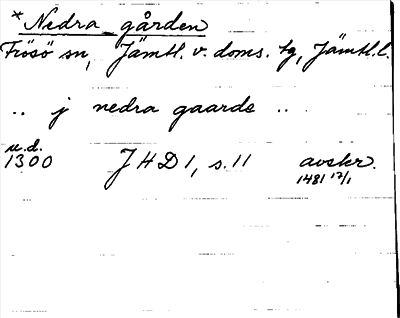 * Nedra gården
Frösö sn, Jämtl. v. doms. tg, Jämtl. l.
.. j nedra gaarde ..
u.d.
1300 JHD 1, s. 11 avskr.
1481 17/1